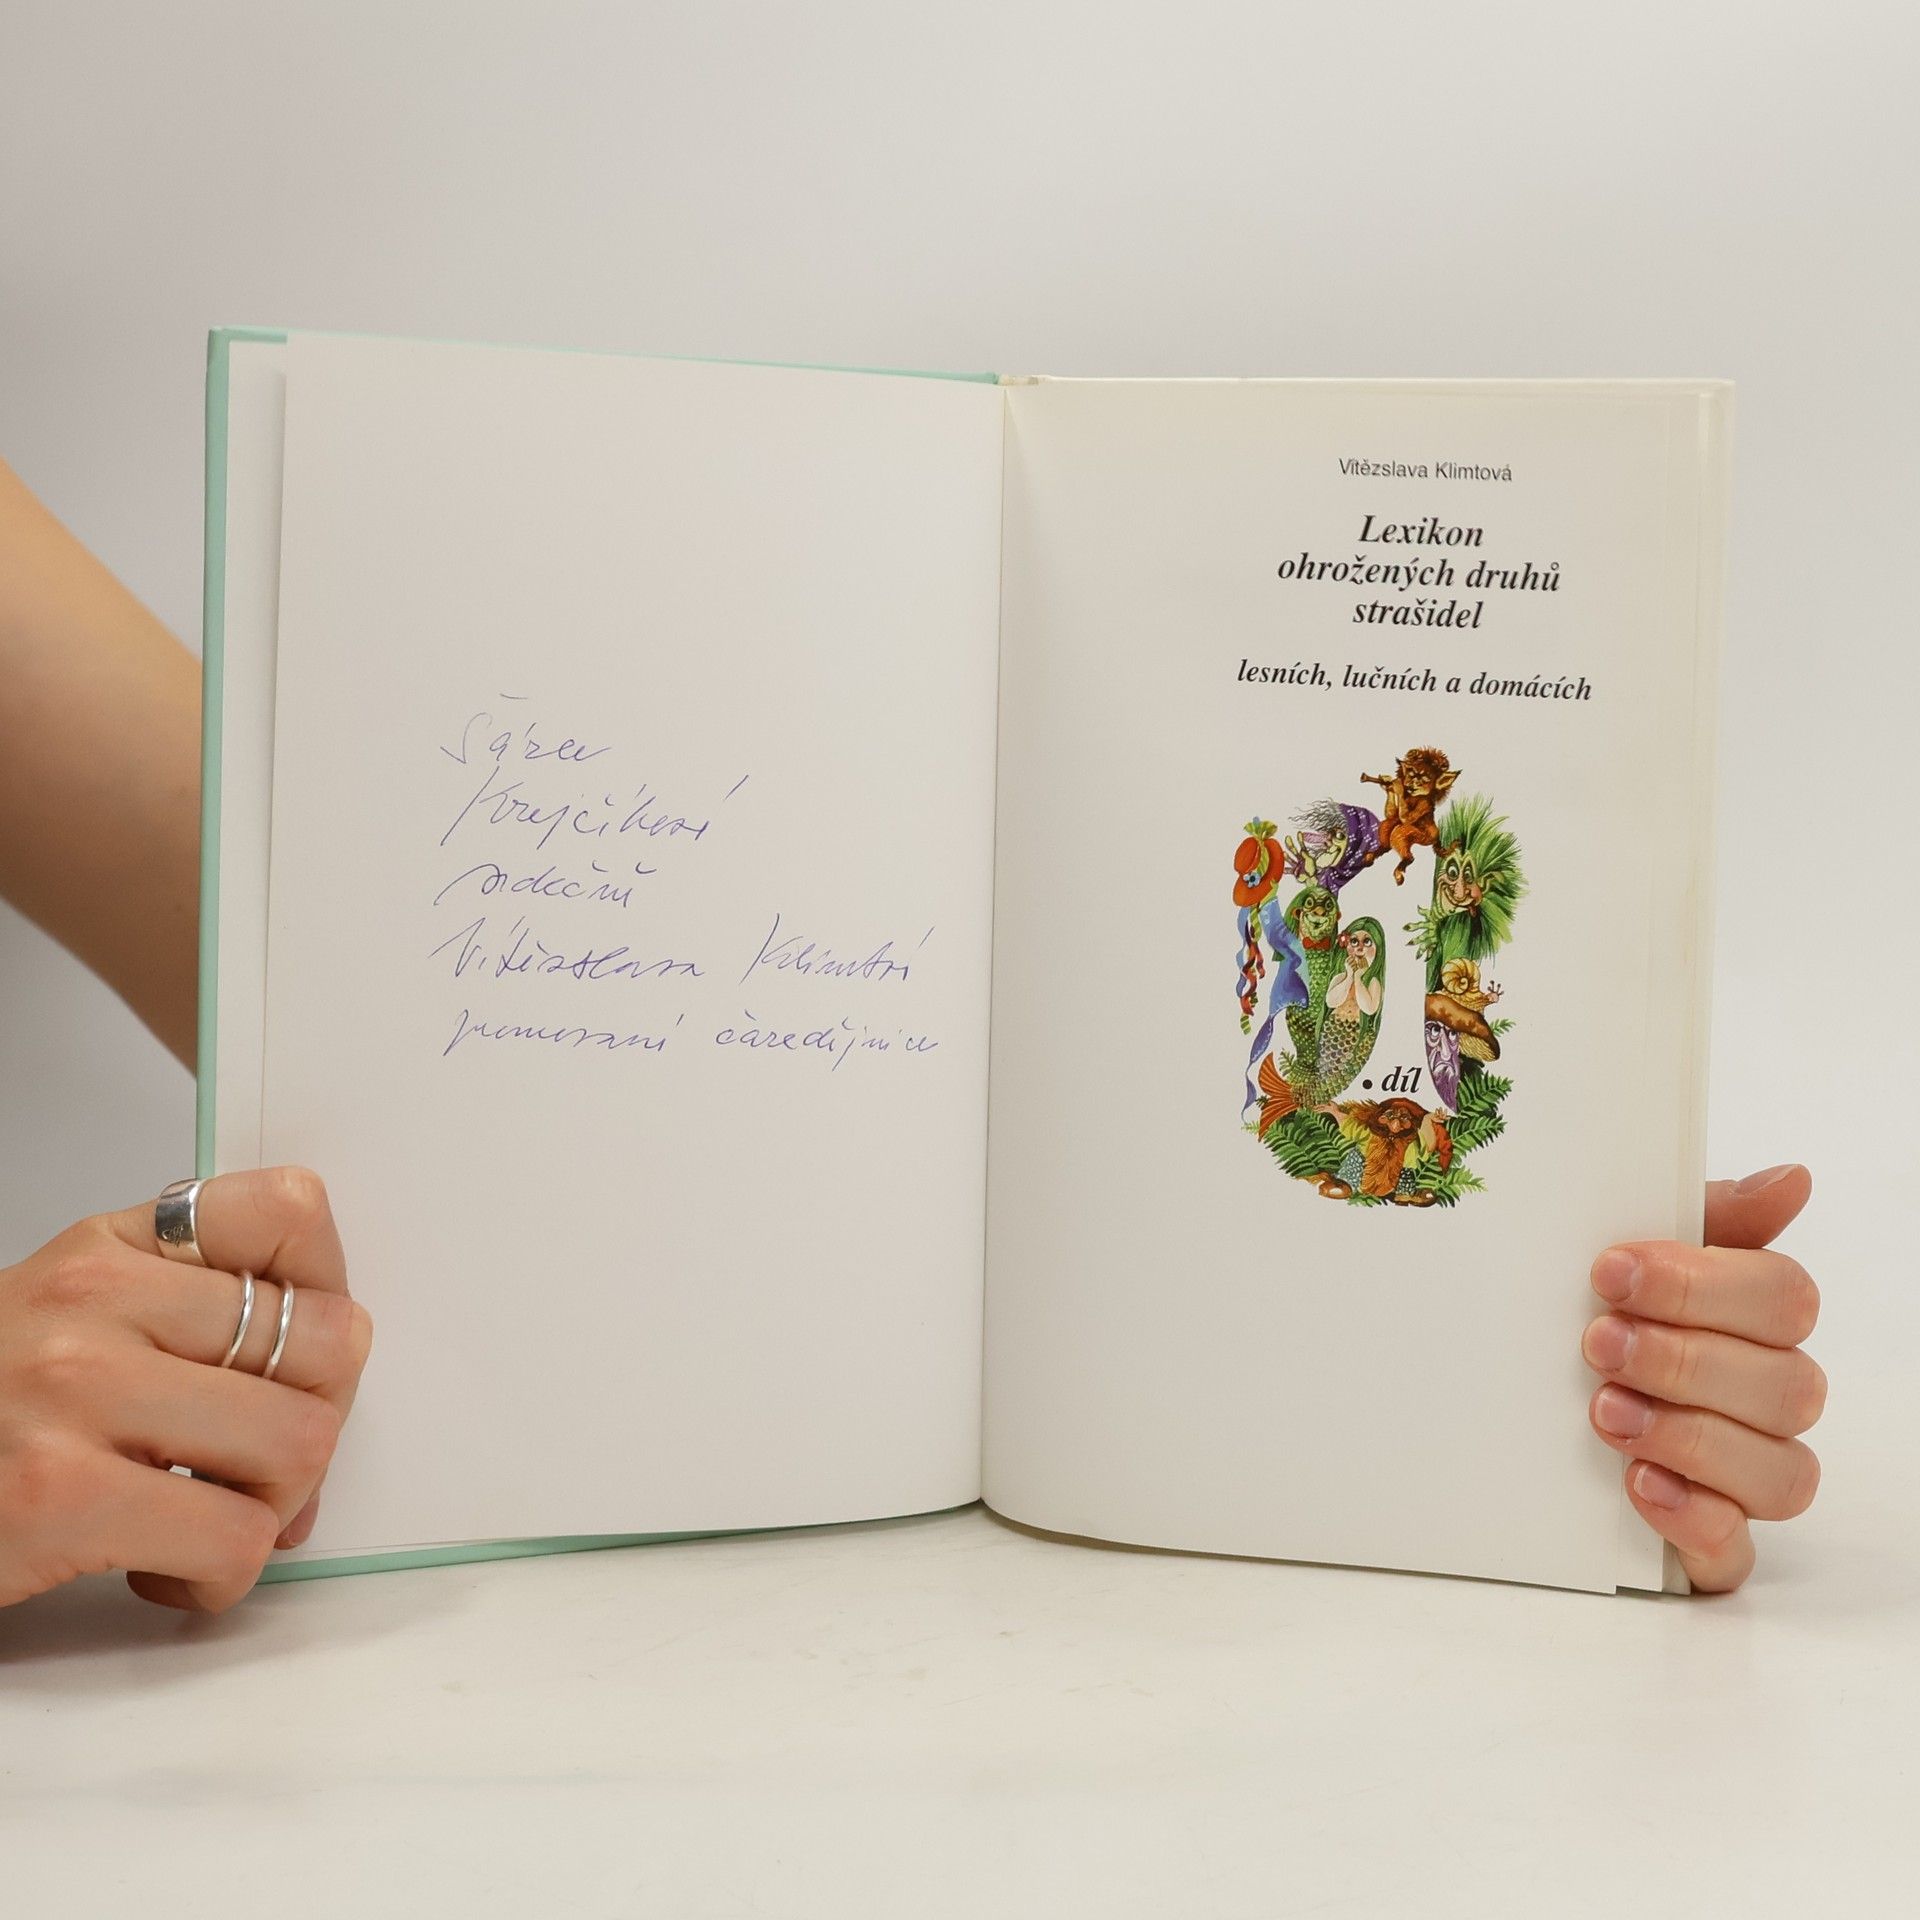 Šárce
Krejčíkové
srdečně
Vítězslava Klimtová
promovaná čarodějnice
Vítězslava Klimtová
Lexikon
ohrožených druhů
strašidel
lesních, lučních a domácích
1
. díl